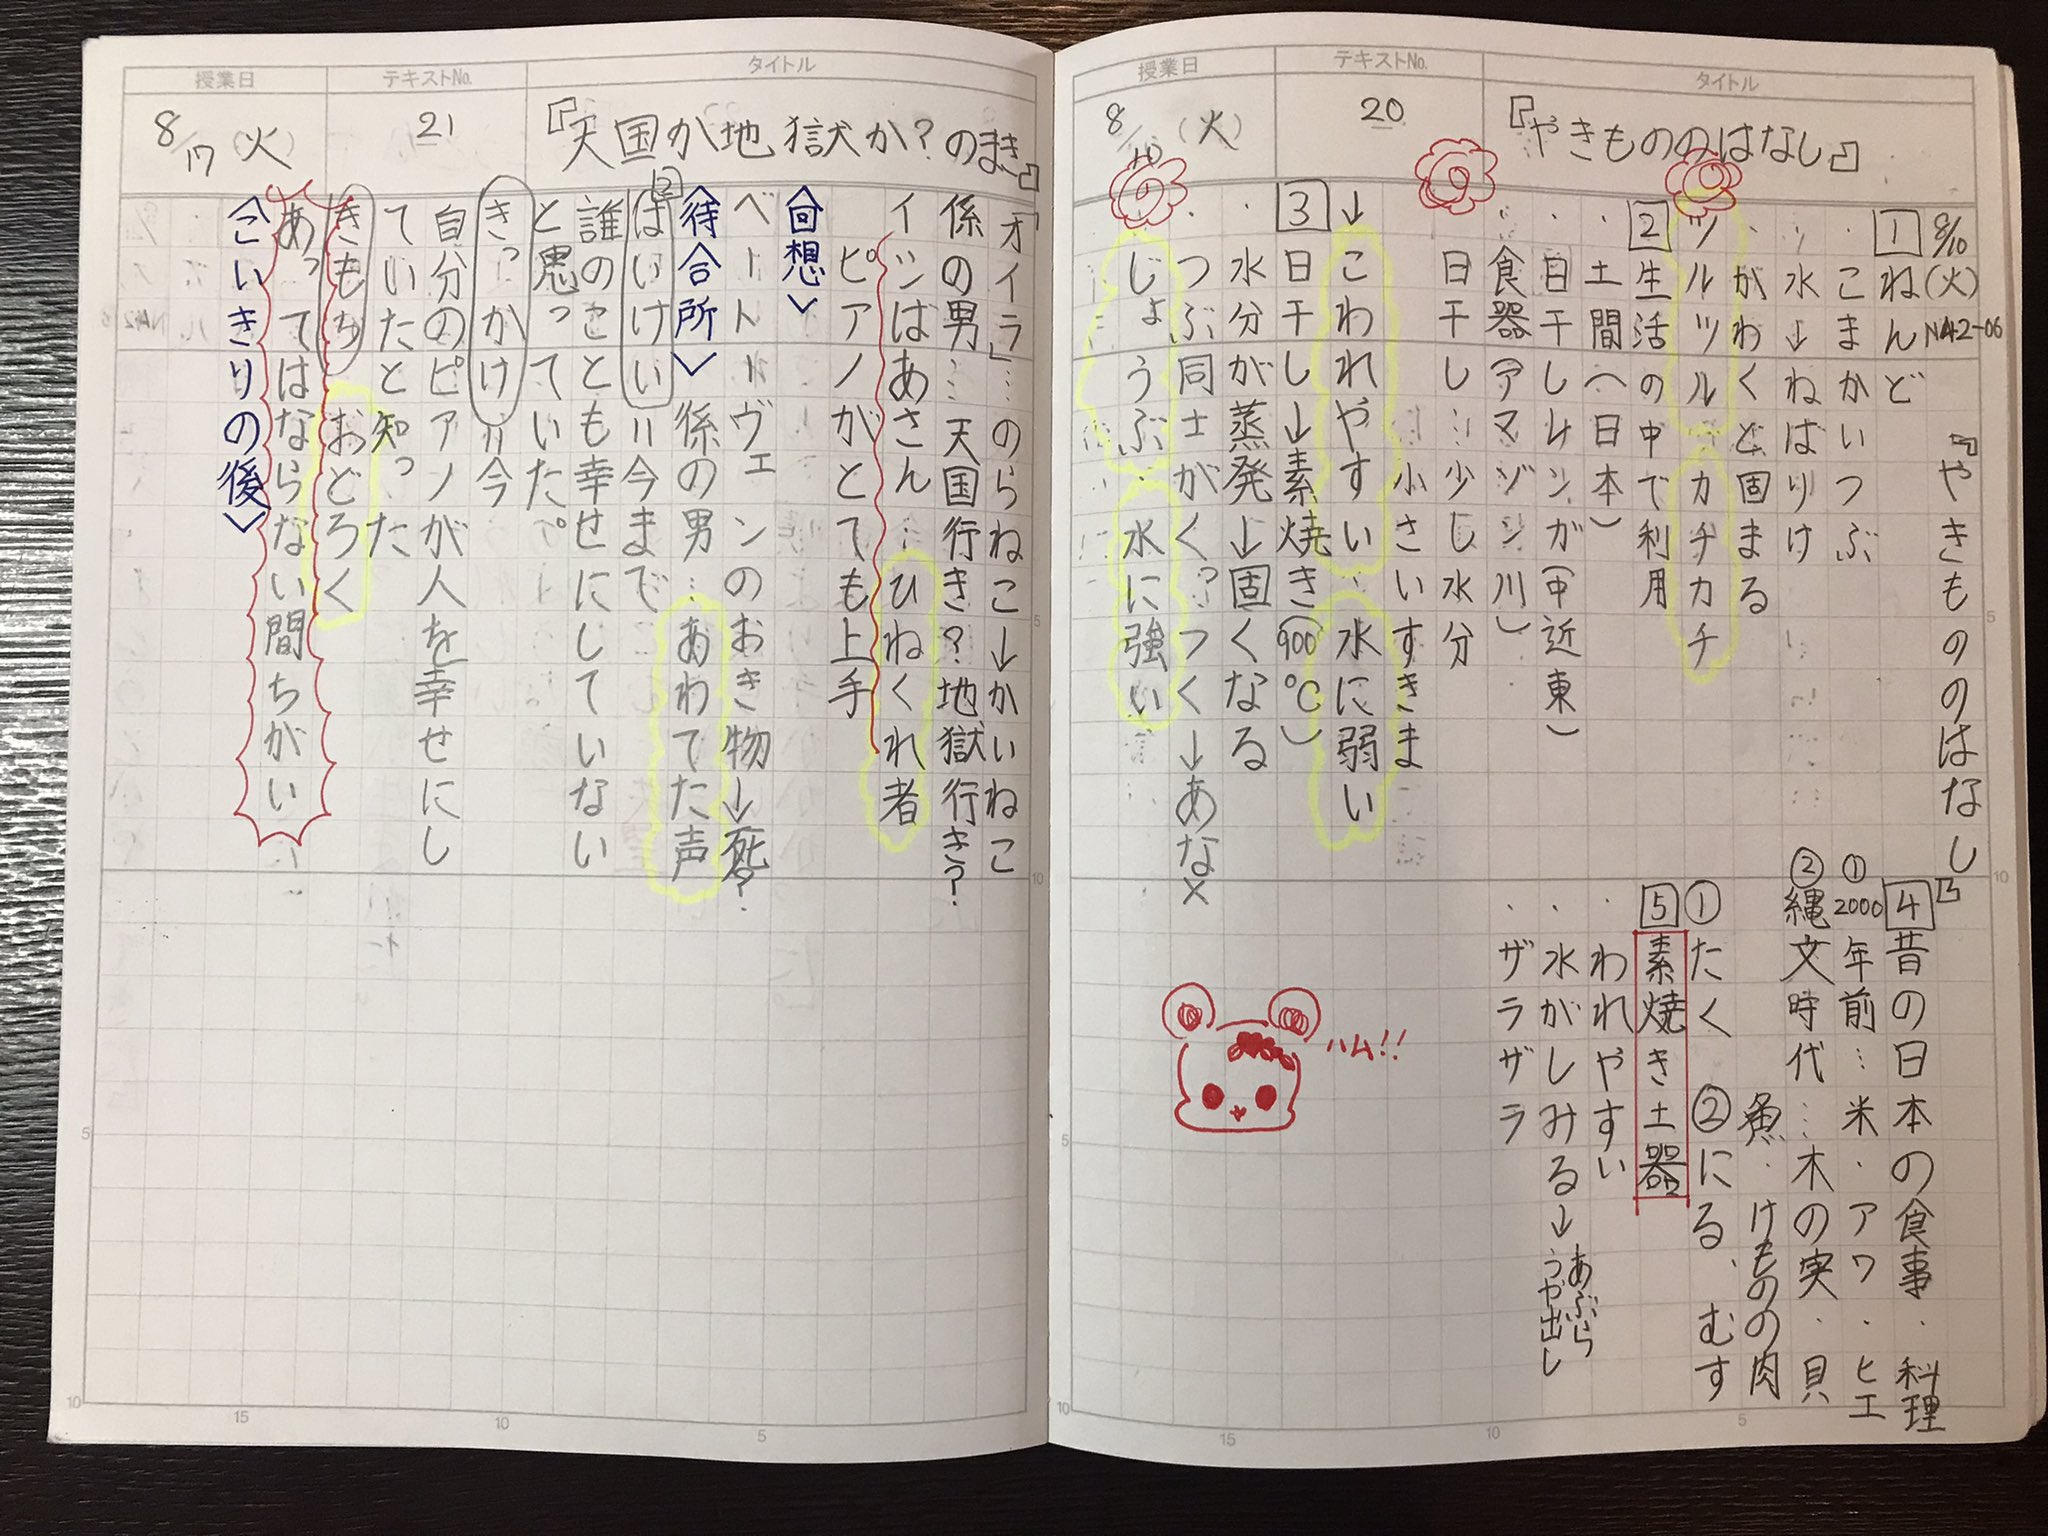 タイトル
テキストNo.
授業日
『やきもののはなし』
20
8/10（火）
8/10(火) N42-06
『やきもののはなし』
1 ねんど
・こまかいつぶ
・水→ねばりけ
・かわくと固まる
ツルツル・カチカチ
2 生活の中で利用
・土間（日本）
・日干しレンガ（中近東）
・食器（アマゾン川）
日干し…少し水分
小さいすきま
→こわれやすい…水に弱い
3 日干し→素焼き（900℃）
水分が蒸発→固くなる
・つぶ同士がくっつく→あな×
・じょうぶ・水に強い
4 昔の日本の食事・料理
①2000年前…米・アワ・ヒエ
②縄文時代…木の実・貝
魚・けものの肉
①たく ②にる、むす
5 素焼き土器
・われやすい
・水がしみる→あぶら
うや出し
・ザラザラ
ハム!!
タイトル
テキストNo.
授業日
『天国か地獄か?のまき』
21
8/17（火）
「オイラ」…のらねこ→かいねこ
係の男…天国行き?地獄行き?
イツばあさん…ひねくれ者
ピアノがとても上手
〈回想〉
ベートーヴェンのおき物→死?
2
〈待合所〉係の男…あわてた声
はいけい=今まで
誰のことも幸せにしていない
と思っていた。
きっかけ=今
自分のピアノが人を幸せにし
ていたと知った
きもち おどろく
あってはならない間ちがい
〈こいきりの後〉